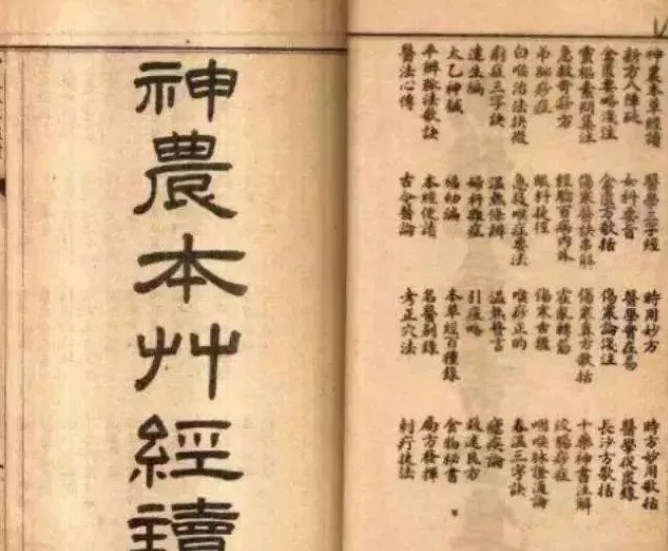 神農本草經讀 醫學三字經 時用妙方 時方妙用歌括
新方八陣砭 女科要旨 醫學實在易 醫學從眾錄
金匱要略淺注 金匱方歌括 傷寒論淺注 長沙方歌括
靈樞素問集注 傷寒醫訣串解 傷寒真方歌括 十藥神書注解
急救奇痧方 經驗百病內外 霍亂轉筋 絞腸痧症
弔腳痧症 眼科捷徑 傷寒舌鑑 咽喉脉證通論
白喉治法抉微 急救喉症要法 喉痧正的 春溫三字訣
刺疔三字訣 溫熱條辨 溫熱贅言 瘧疾論
達生編 婦科雜症 引痘略 救迷良方
太乙神鍼 福幼編 本草經百種錄 食物秘書
平辨脉法歌訣 本經便讀 名醫別錄 局方發揮
醫法心傳 古今醫論 考正穴法 刺疔捷法
神農本艸經讀